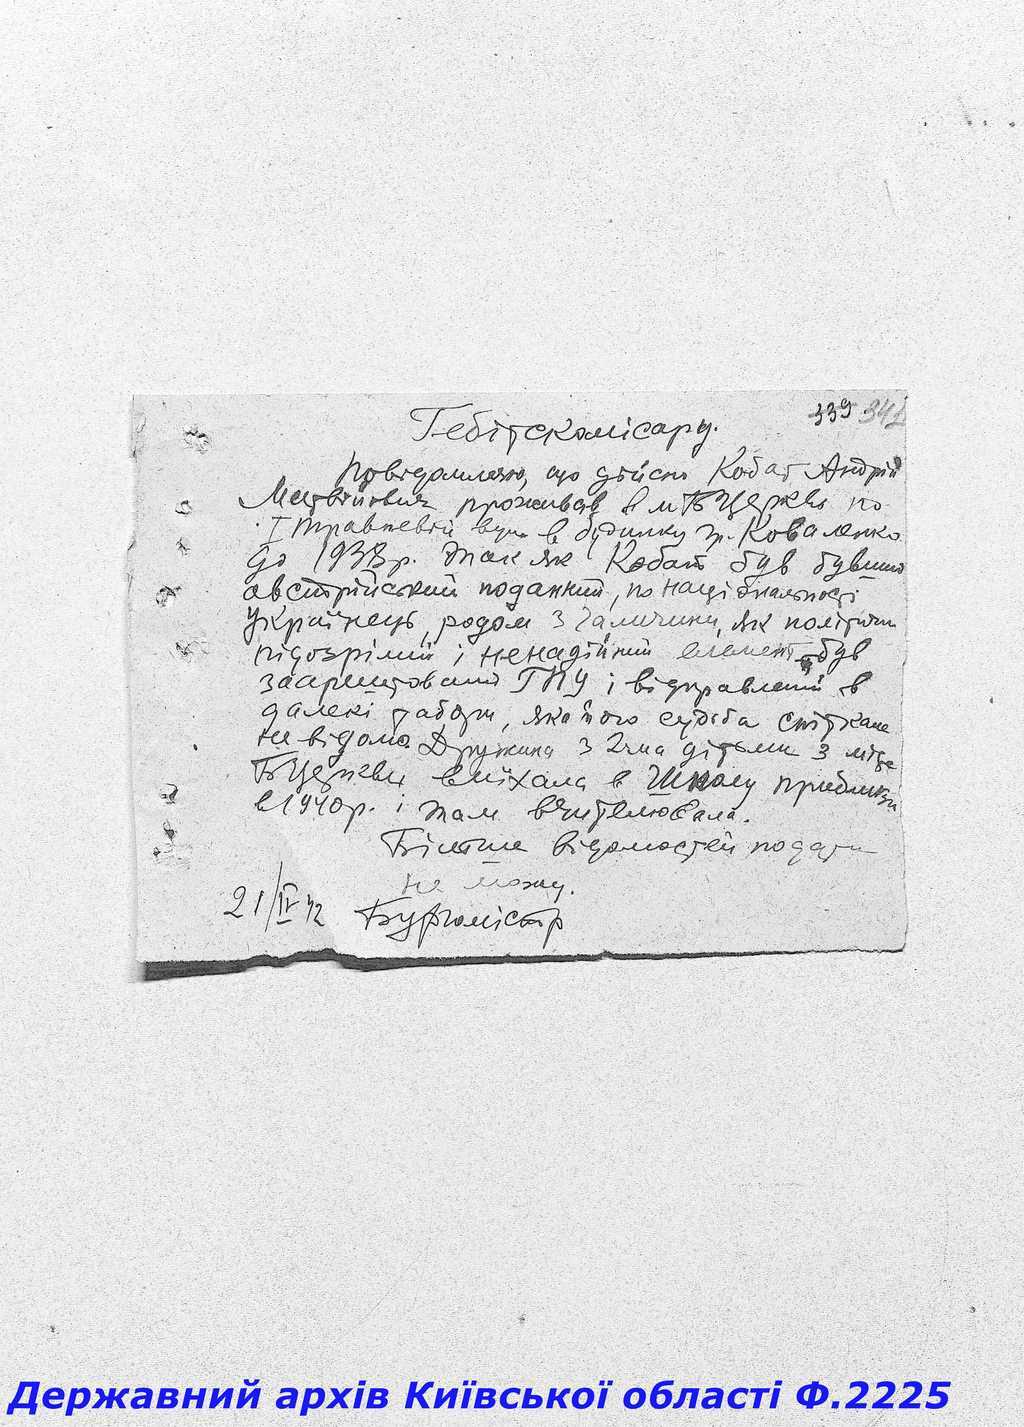 339 341
Гебітскомісару.
Повідомляю, що дійсно Кобат Андрій
Матвійович проживав в м Б Церкві по
І Травневій вул. в будинку гр. Коваленко
до 1933 р. Так як Кобат був бувший
австрійський поданний, по національності
Українець, родом з Галичини, як політично
підозрілий і ненадійний елемент був
заарештований ГПУ і відправлений в
далекі табори, яка його судьба спіткала
не відомо. Дружина з 2ма дітьми з міста
Б Церкви виїхала в Школу приблизно
в 1940 р. і там вчителювала.
Більше відомостей подати
не можу.
21/IV 42 Бургомістр
Державний архів Київської області Ф.2225